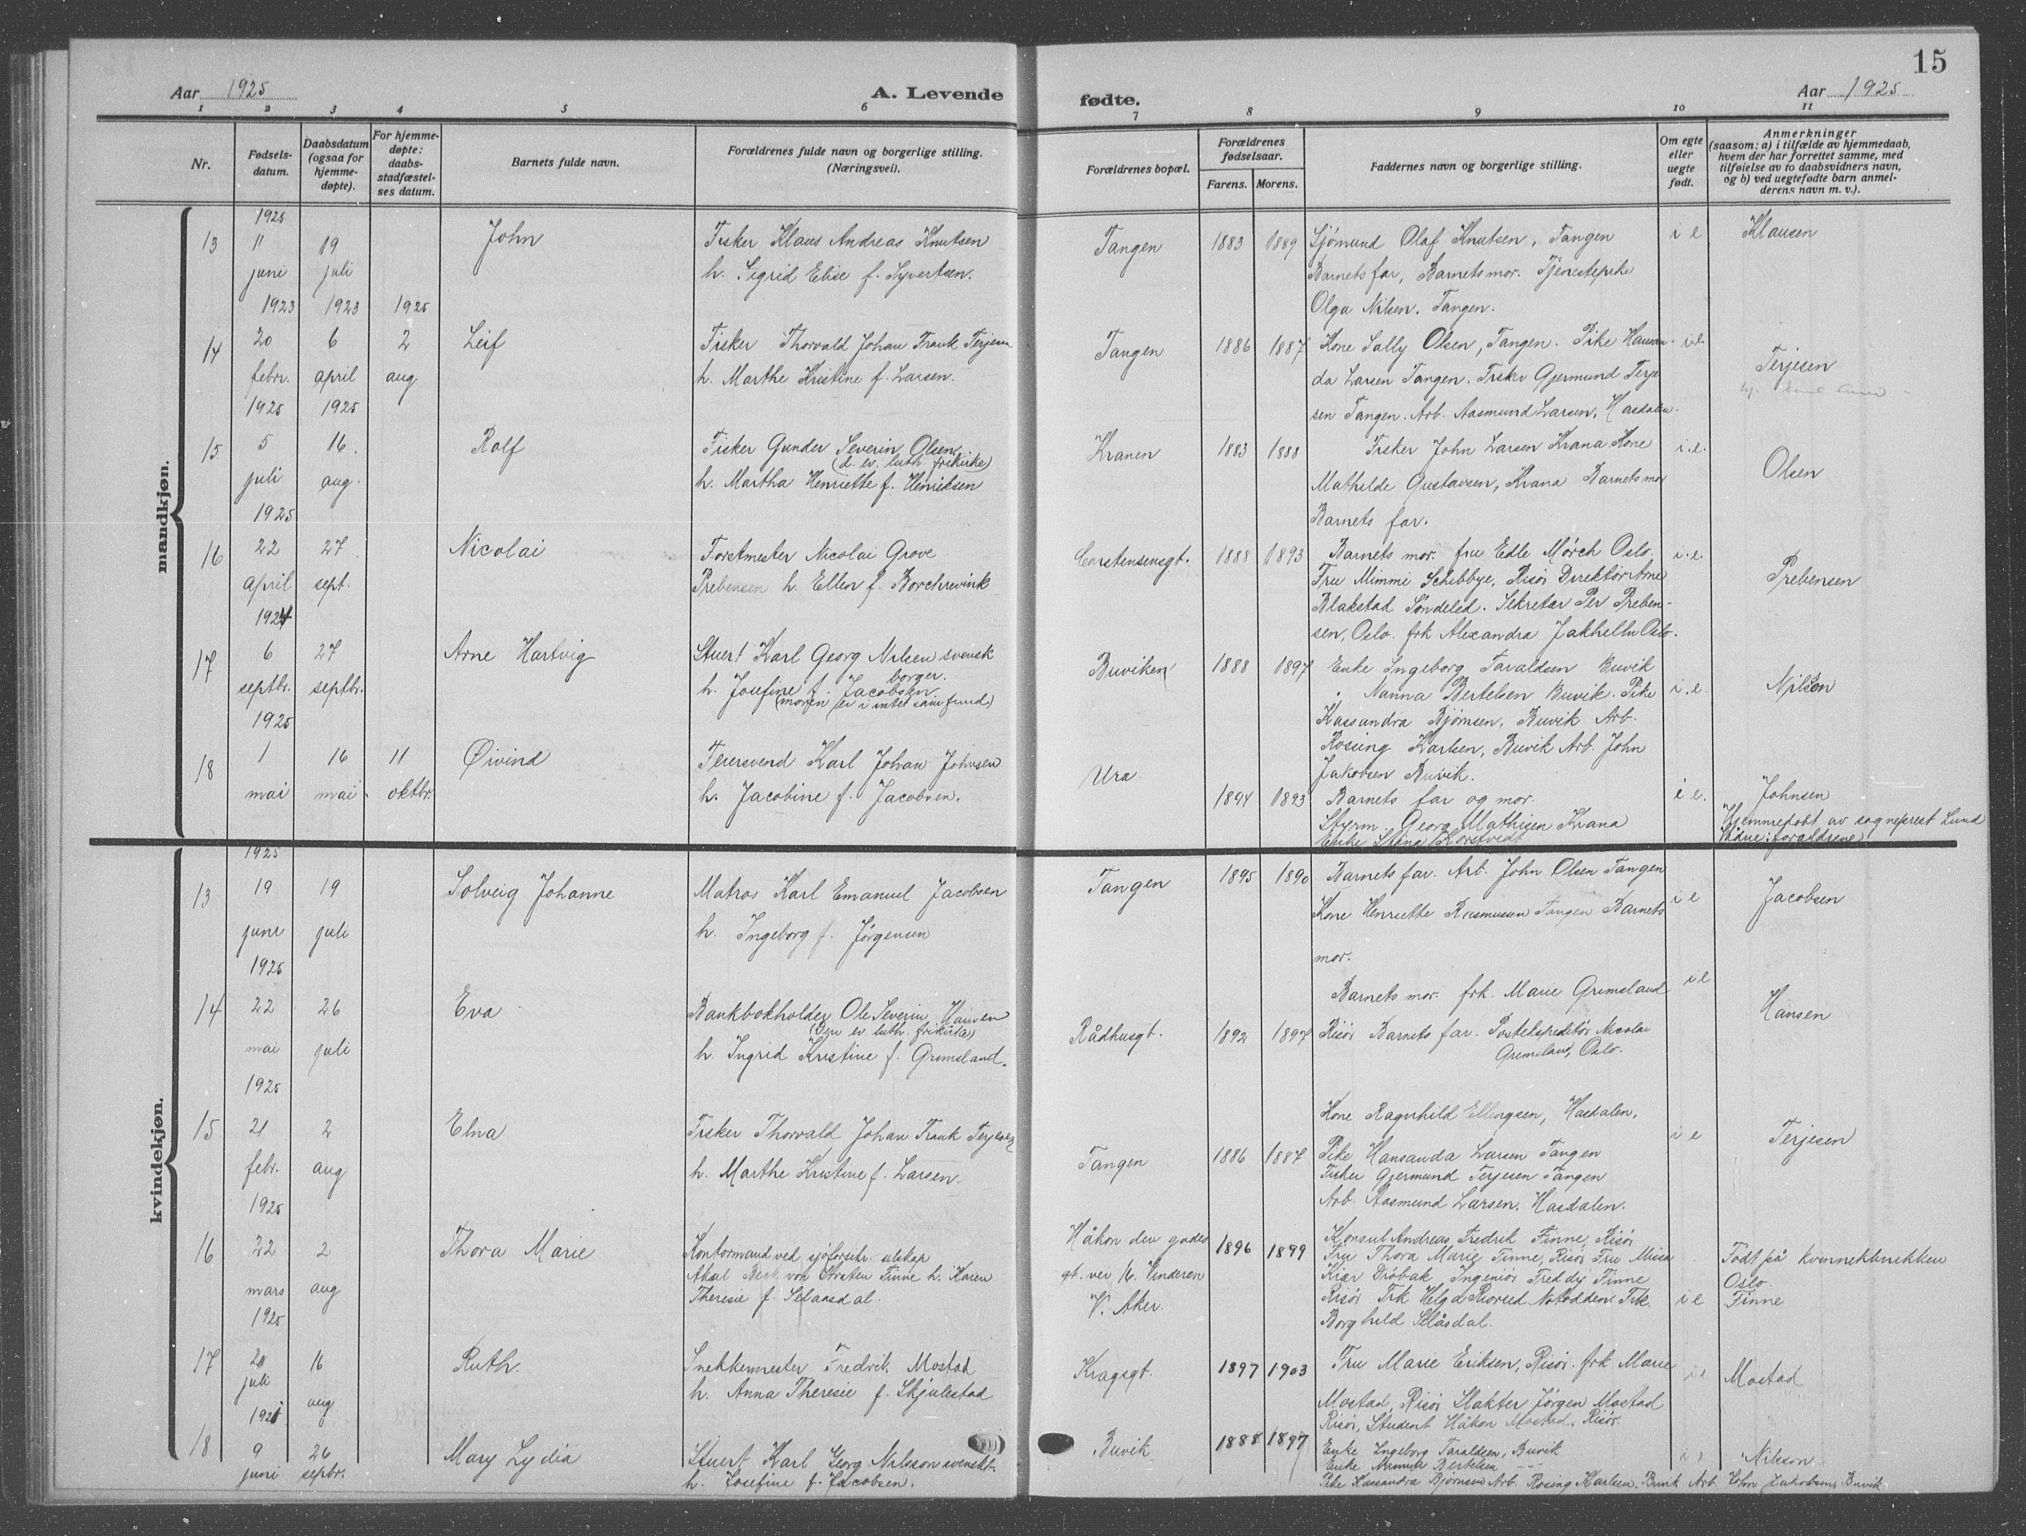 15
Aar 1925
A. Levende
fødte.
Aar 1925
1 2 3 4 5 6 7 8 9 10 11
Nr.
Fødsels-
datum.
Daabsdatum
(ogsaa for
hjemme-
døpte).
For hjemme-
døpte:
daabs-
stadfæstel-
ses datum.
Barnets fulde navn.
Forældrenes fulde navn og borgerlige stilling.
(Næringsvei).
Forældrenes bopæl.
Forældrenes
fødselsaar.
Farens. Morens.
Faddernes navn og borgerlige stilling.
Om egte
eller
uegte
født.
Anmerkninger
(saasom: a) i tilfælde av hjemmedaab,
hvem der har forrettet samme, med
tilføielse av to daabsvidners navn,
og b) ved uegtefødte barn anmel-
derens navn m. v.).
mandkjøn.
1925
13 11 19 John
juni juli
Fisker Klaus Andreas Knutsen
h. Sigrid Elise f. Syvertsen.
Tangen 1883 1889
Sjømand Olaf Knutsen, Tangen
Barnets far, Barnets mor. Tjenestepike
Olga Nilsen. Tangen.
i e Klausen
1923 1923 1925
14 20 6 2 Leif
febr. april aug
Fisker Thorvald Johan Frank Terjesen
h. Marthe Kristine f. Larsen.
Tangen 1886 1887
Kone Sally Olsen, Tangen. Pike Hansan-
da Larsen Tangen. Fisker Gjermund Terje
sen Tangen. Arb. Aasmund Larsen, Hasdalen.
i.e. Terjesen
1925 1925
15 5 16. Rolf
juli aug.
Fisker Gunder Severin Olsen
(d. ev. luth. frikirke)
h. Martha Henriette f. Henriksen
Kranen 1883 1888
Fisker John Larsen Krana Kone
Mathilde Gustavsen, Krana Barnets mor
Barnets far.
i.e. Olsen
1925
16 22 27 Nicolai
april sept.
Forstmester Nicolai Grove
Prebensen h. Ellen f. Borchrevink
Carstensensgt. 1888 1893
Barnets mor. fru Edle Mørch Oslo.
Fru Mimmi Schibbye, Risør Direktør Arne
Blakstad Søndeled. Sekretær Per Preben-
sen, Oslo. frk Alexandra Jakhelln Oslo.
i.e. Prebensen
1924
17 6 27 Arne Hartvig
septbr. septbr.
Stuert Karl Georg Nilsen svensk
borger.
h. Josefine f. Jacobsen.
(moren er i intet samfund.)
Buviken 1888 1897
Enke Ingeborg Taraldsen Buvik
" Nanna Bertelsen Buvik. Pike
Kassandra Bjørnsen, Buvik Arb.
Rossing Karlsen, Buvik Arb. John
Jakobsen Buvik.
i.e. Nilsen
1925
18 1 16 11 Øivind
mai mai oktbr.
Feiersvend Karl Johan Johnsen
h. Jacobine f. Jacobsen.
Ura. 1894 1893
Barnets far og mor.
Styrm. Georg Mathisen Krana
Enke Stina Korstvedt
i e. Johnsen
Hjemmedøbt av sogneprest Lund
Vidne: forældrene)
kvindekjøn.
1925
13 19 19 Solveig Johanne
juni juli
Matros Karl Emanuel Jacobsen
h. Ingeborg f. Jørgensen
Tangen 1895 1890
Barnets far. Arb. John Olsen Tangen
Kone Henriette Rasmussen Tangen Barnets
mor.
i e Jacobsen
1925
14 22 26 Eva
mai juli
Bankbokholder Ole Severin Hansen
(Den ev luth. frikirke)
h. Ingrid Kristine f. Grimsland.
Rådhusgt. 1892 1897
Barnets mor. frk. Marie Grimsland
Risør Barnets far. Postekspeditør Nicolai
Grimsland, Oslo.
i e Hansen
1925
15 21 2 Elna
febr. aug
Fisker Thorvald Johan Frank Terjesen
h. Marthe Kristine f. Larsen.
Tangen 1886 1887
Kone Ragnhild Ellingsen, Hasdalen,
Pike Hansanda Larsen Tangen
Fisker Gjermund Terjesen Tangen
Arb. Aasmund Larsen. Hasdalen.
i e Terjesen
1925
16 22 2 Thora Marie
mars aug
Kontormand ved sjøforsikr. selskap
Aksel Beck von Straten Finne h. Karen
Theresie f. Selaasdal.
Håkon den godes
gt. vei 16. Vinderen
V. Aker.
1896 1899
Konsul Andreas Fredrik Finne, Risør
Fru Thora Marie Finne, Risør Fru Missa
Kiær Drøbak Ingeniør Freddy Finne
Risør Frk Helga Notodden. Frk.
Borghild Selåsdal.
i e
Født på kvinneklinikken
Oslo.
Finne
1925
17 20 16 Ruth.
juli aug
Snekkermester Fredrik Mostad
h. Anna Theresie f. Skjulestad
Kragsgt. 1897 1903
Fru Marie Eriksen, Risør. frk Marie
Mostad, Risør Slakter Jørgen Mostad
Risør, Student Håkon Mostad. Risør.
i e Mostad
1921
18 9 26 Mary Lydia
juni septbr.
Stuert Karl Georg Nilsson svensk b.
h. Josefine f. Jacobsen.
Buvik 1888 1897
Enke Ingeborg Taraldsen, Buvik
Enke Bertelsen - - -
Pike Kassandra Bjørnsen Arb. Rosing Karlsen. Buvik Arb. John Jakobsen, Buvik
i e Nilsson